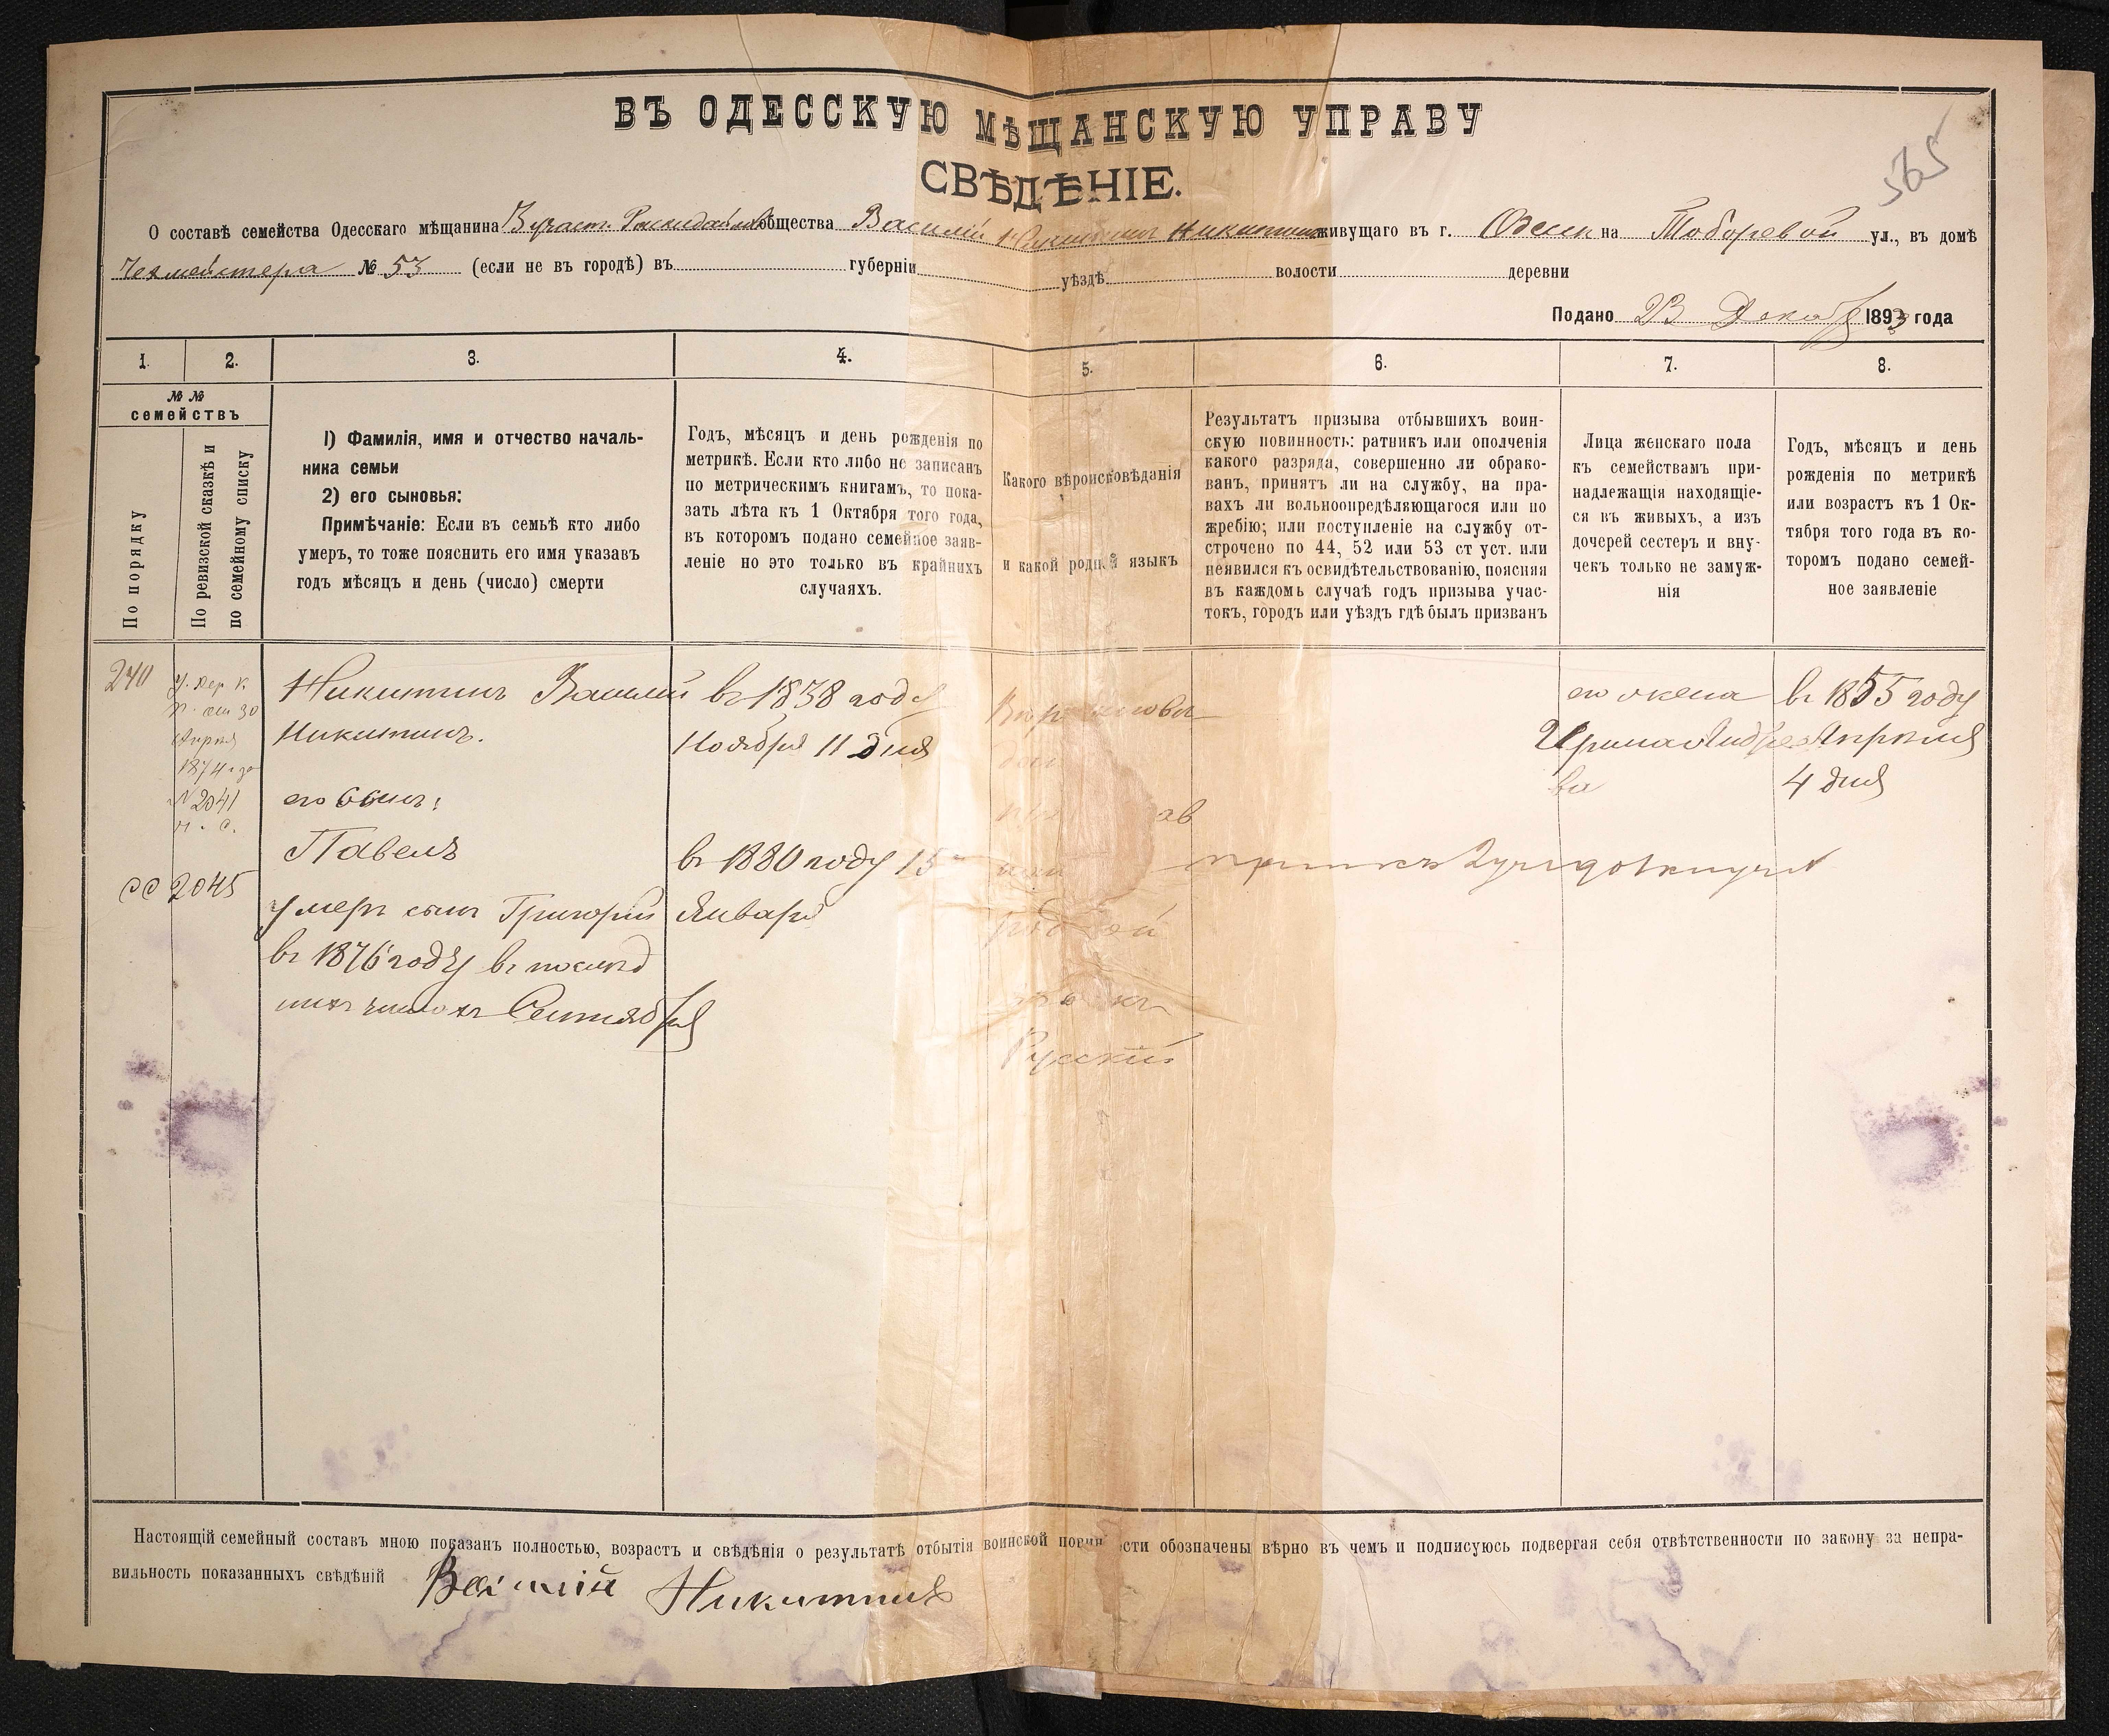 565
ВЪ ОДЕССКУЮ МѢЩАНСКУЮ УПРАВУ
СВѢДѢНІЕ.
О составѣ семейства Одесскаго мѣщанина общества Василій Никитинъ живущаго въ г. на ул., въ домѣ
№ 53 (если не въ городѣ) въ губерніи уѣздѣ волости деревни
Подано 23 Декабр 1893 года
1. 2. 3. 4. 5. 6. 7. 8.
№ № семействъ
По порядку
По ревизской сказкѣ и
по семейному списку
1) Фамилія, имя и отчество началь-
ника семьи
2) его сыновья:
Примѣчаніе: Если въ семьѣ кто либо
умеръ, то тоже пояснить его имя указавъ
годъ мѣсяцъ и день (число) смерти
Годъ, мѣсяцъ и день рожденія по
метрикѣ. Если кто либо не записанъ
по метрическимъ книгамъ, то пока-
зать лѣта къ 1 Октября того года,
въ которомъ подано семейное заяв-
леніе но это только въ крайнихъ
случаяхъ.
Какого вѣроисковѣданія
и какой родной языкъ
Результатъ призыва отбывшихъ воин-
скую повинность: ратникъ или ополченія
какого разряда, совершенно ли обрако-
ванъ, принятъ ли на службу, на пра-
вахъ ли вольноопредѣляющагося или по
жребію; или поступленіе на службу от-
строчено по 44, 52 или 53 ст уст. или
неявился къ освидѣтельствованію, поясняя
въ каждомъ случаѣ годъ призыва учас-
токъ, городъ или уѣздъ гдѣ былъ призванъ
Лица женскаго пола
къ семействамъ при-
надлежащія находящіе-
ся въ живыхъ, а изъ
дочерей сестеръ и вну-
чекъ только не замуж-
нія
Годъ, мѣсяцъ и день
рожденія по метрикѣ
или возрастъ къ 1 Ок-
тября того года въ ко-
торомъ подано семей-
ное заявленіе
240
Апрѣля
1874 го
№ 2041
2045
Никитинъ Василий
Никитинъ.
его сынъ:
Павелъ
умеръ сынъ Григорий
въ 1876 году въ послѣд
нихъ числахъ Сентября
въ 1838 году
Ноября 11 дня
въ 1880 году 15
Января
Русский
его жена
Ирина Андрее
ва
въ 1855 году
Апрѣля
4 дня
Настоящій семейный составъ мною показанъ полностью, возрастъ и свѣдѣнія о результатѣ отбытія воинской повинности обозначены вѣрно въ чемъ и подписуюсь подвергая себя отвѣтственности по закону за непра-
вильность показанныхъ свѣдѣній Василій Никитинъ